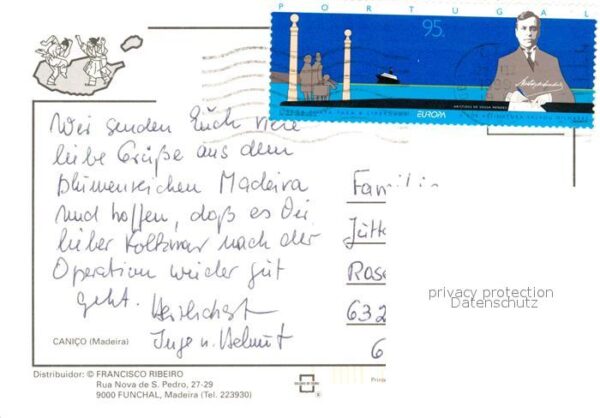 PORTUGAL
95.
ARISTIDES DE SOUSA MENDES
EUROPA
Wir senden Euch viele
liebe Grüße aus dem
blumenreichen Madeira
und hoffen, daß es Dir
lieber Volkmar nach der
Operation wieder gut
geht. Herzlichst
Inge u. Helmut
Famili
Jütt
Rose
632
6
privacy protection
Datenschutz
CANIÇO (Madeira)
Distribuidor: © FRANCISCO RIBEIRO
Rua Nova de S. Pedro, 27-29
9000 FUNCHAL, Madeira (Tel. 223930)
Printed